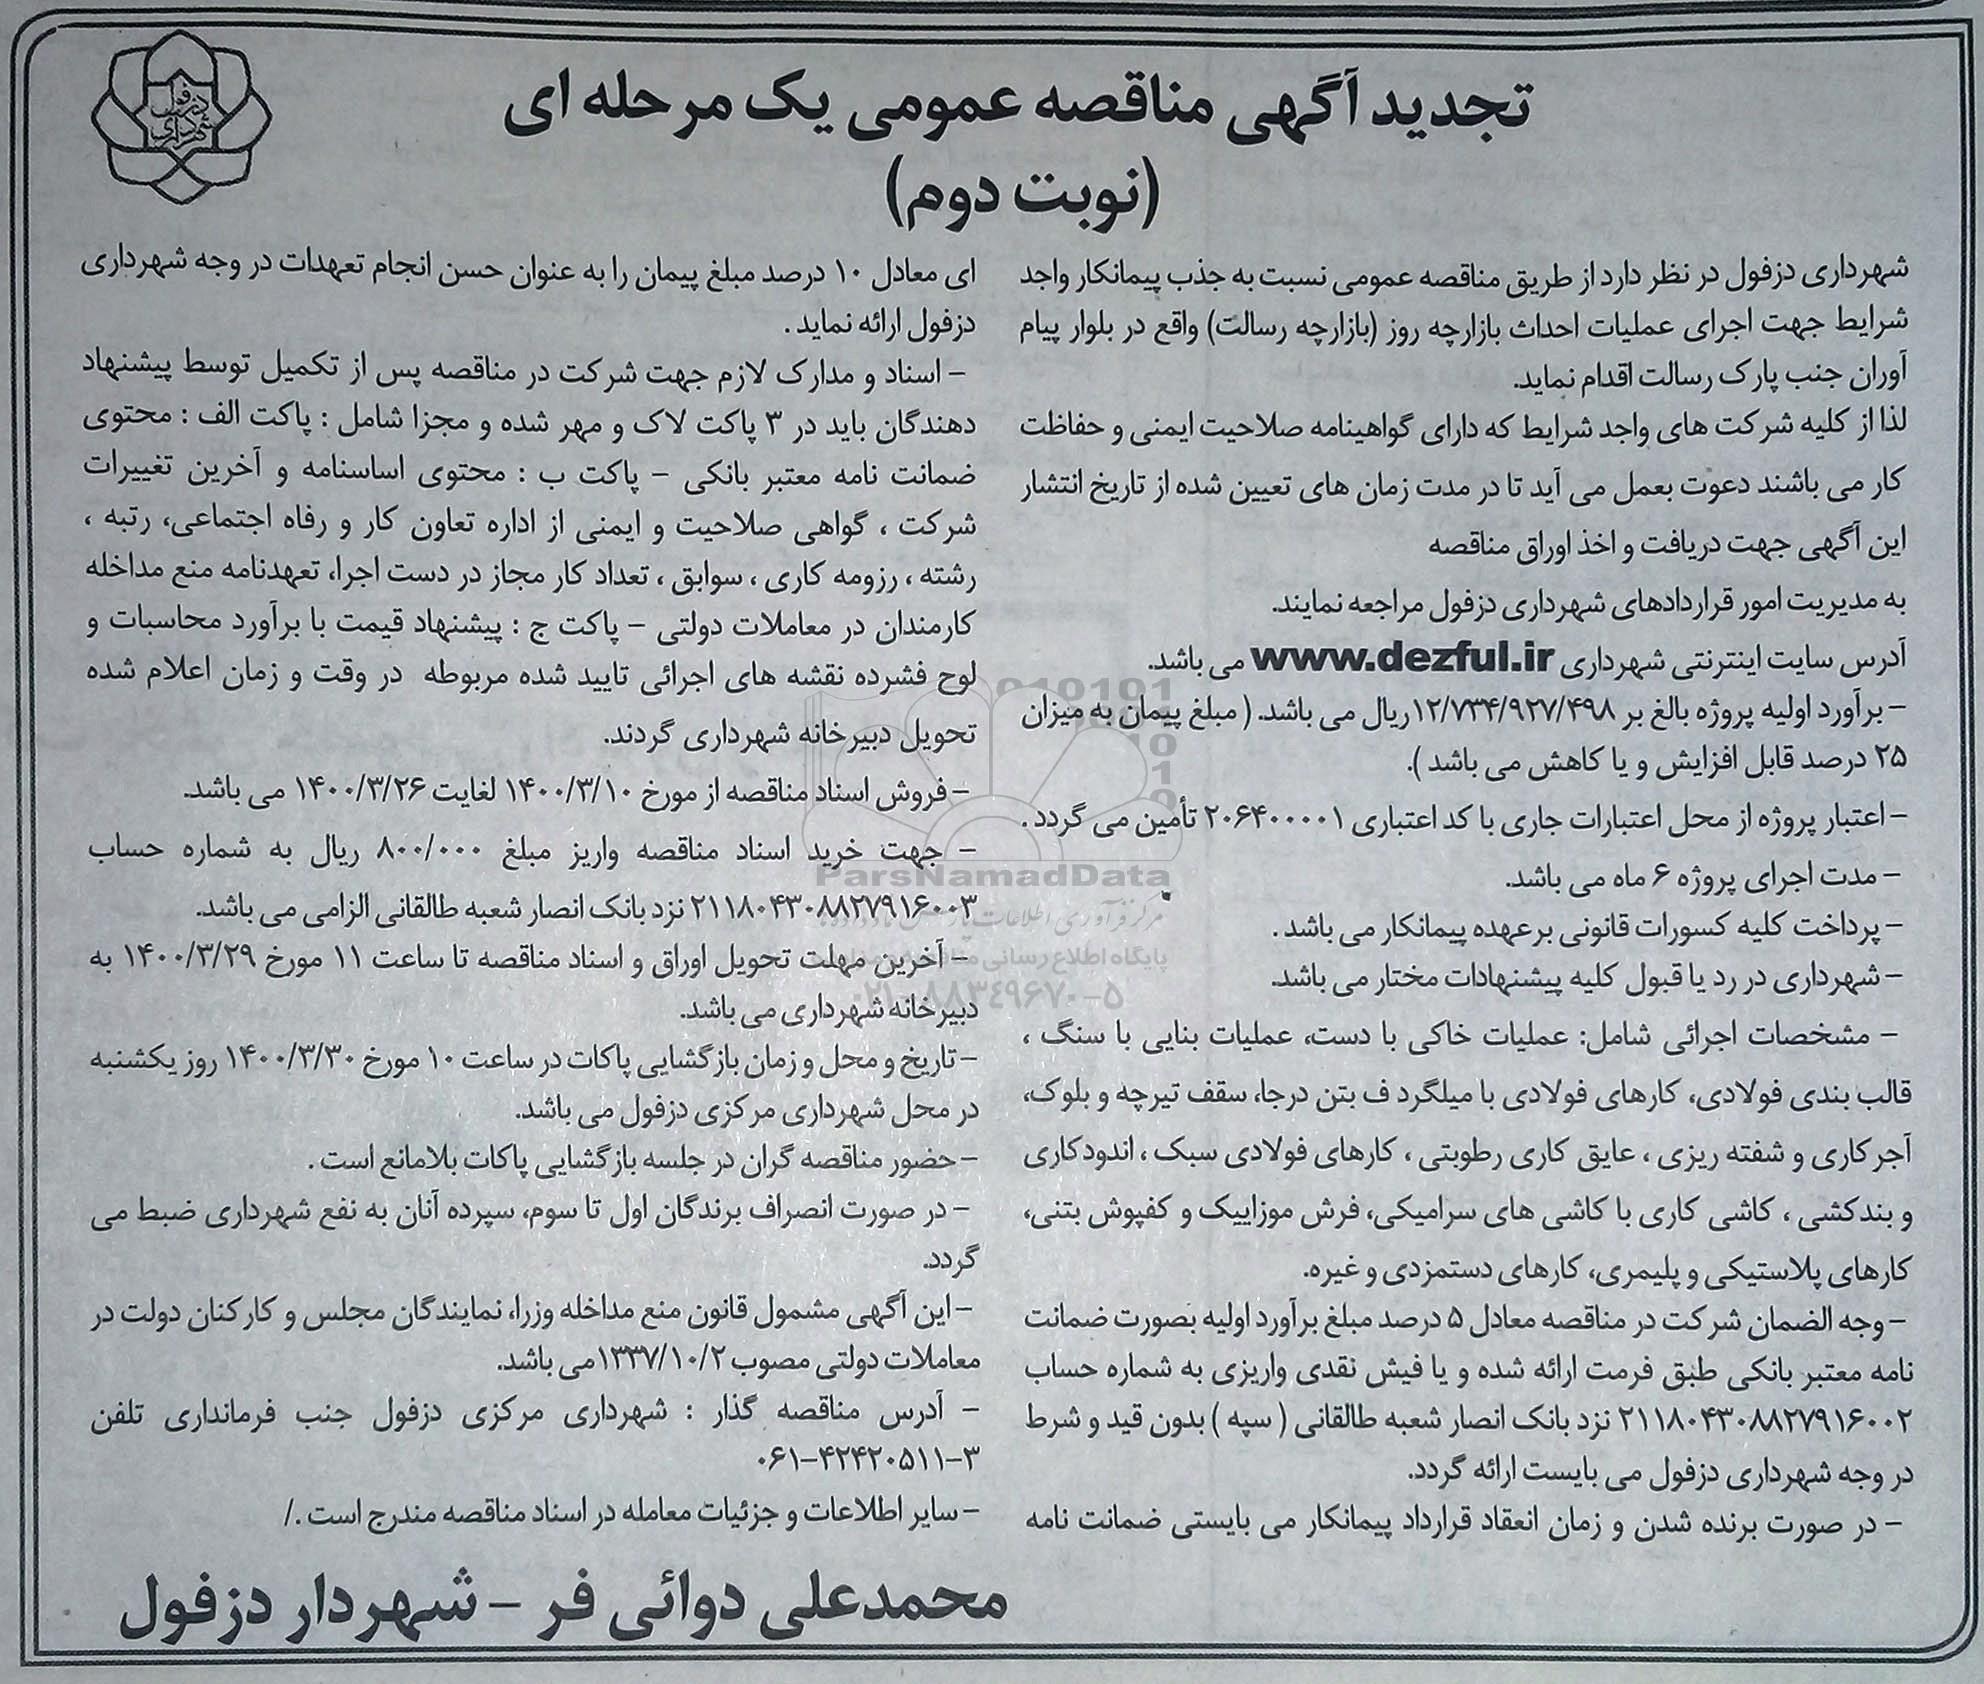 شهرداری دزفول
تجدید آگهی مناقصه عمومی یک مرحله ای
(نوبت دوم)
شهرداری دزفول در نظر دارد از طریق مناقصه عمومی نسبت به جذب پیمانکار واجد
شرایط جهت اجرای عملیات احداث بازارچه روز (بازارچه رسالت) واقع در بلوار پیام
آوران جنب پارک رسالت اقدام نماید.
لذا از کلیه شرکت های واجد شرایط که دارای گواهینامه صلاحیت ایمنی و حفاظت
کار می باشند دعوت بعمل می آید تا در مدت زمان های تعیین شده از تاریخ انتشار
این آگهی جهت دریافت و اخذ اوراق مناقصه
به مدیریت امور قراردادهای شهرداری دزفول مراجعه نمایند.
آدرس سایت اینترنتی شهرداری www.dezful.ir می باشد.
- برآورد اولیه پروژه بالغ بر ۱۲/۷۳۴/۹۲۷/۴۹۸ریال می باشد. ( مبلغ پیمان به میزان
۲۵ درصد قابل افزایش و یا کاهش می باشد ).
- اعتبار پروژه از محل اعتبارات جاری با کد اعتباری ۲۰۶۴۰۰۰۰۱ تأمین می گردد .
- مدت اجرای پروژه ۶ ماه می باشد.
- پرداخت کلیه کسورات قانونی برعهده پیمانکار می باشد .
- شهرداری در رد یا قبول کلیه پیشنهادات مختار می باشد.
- مشخصات اجرائی شامل: عملیات خاکی با دست، عملیات بنایی با سنگ ،
قالب بندی فولادی، کارهای فولادی با میلگرد ف بتن درجا، سقف تیرچه و بلوک،
آجرکاری و شفته ریزی ، عایق کاری رطوبتی ، کارهای فولادی سبک ، اندودکاری
و بندکشی ، کاشی کاری با کاشی های سرامیکی، فرش موزاییک و کفپوش بتنی،
کارهای پلاستیکی و پلیمری، کارهای دستمزدی و غیره.
- وجه الضمان شرکت در مناقصه معادل ۵ درصد مبلغ برآورد اولیه بصورت ضمانت
نامه معتبر بانکی طبق فرمت ارائه شده و یا فیش نقدی واریزی به شماره حساب
۲۱۱۸۰۴۳۰۸۸۲۷۹۱۶۰۰۲ نزد بانک انصار شعبه طالقانی ( سپه ) بدون قید و شرط
در وجه شهرداری دزفول می بایست ارائه گردد.
- در صورت برنده شدن و زمان انعقاد قرارداد پیمانکار می بایستی ضمانت نامه
ای معادل ۱۰ درصد مبلغ پیمان را به عنوان حسن انجام تعهدات در وجه شهرداری
دزفول ارائه نماید .
- اسناد و مدارک لازم جهت شرکت در مناقصه پس از تکمیل توسط پیشنهاد
دهندگان باید در ۳ پاکت لاک و مهر شده و مجزا شامل : پاکت الف : محتوی
ضمانت نامه معتبر بانکی – پاکت ب : محتوی اساسنامه و آخرین تغییرات
شرکت ، گواهی صلاحیت و ایمنی از اداره تعاون کار و رفاه اجتماعی، رتبه ،
رشته ، رزومه کاری ، سوابق ، تعداد کار مجاز در دست اجرا، تعهدنامه منع مداخله
کارمندان در معاملات دولتی – پاکت ج : پیشنهاد قیمت با برآورد محاسبات و
لوح فشرده نقشه های اجرائی تایید شده مربوطه در وقت و زمان اعلام شده
تحویل دبیرخانه شهرداری گردند.
- فروش اسناد مناقصه از مورخ ۱۴۰۰/۳/۱۰ لغایت ۱۴۰۰/۳/۲۶ می باشد.
- جهت خرید اسناد مناقصه واریز مبلغ ۸۰۰/۰۰۰ ریال به شماره حساب
۲۱۱۸۰۴۳۰۸۸۲۷۹۱۶۰۰۳ نزد بانک انصار شعبه طالقانی الزامی می باشد.
- آخرین مهلت تحویل اوراق و اسناد مناقصه تا ساعت ۱۱ مورخ ۱۴۰۰/۳/۲۹ به
دبیرخانه شهرداری می باشد.
- تاریخ و محل و زمان بازگشایی پاکات در ساعت ۱۰ مورخ ۱۴۰۰/۳/۳۰ روز یکشنبه
در محل شهرداری مرکزی دزفول می باشد.
- حضور مناقصه گران در جلسه بازگشایی پاکات بلامانع است .
- در صورت انصراف برندگان اول تا سوم، سپرده آنان به نفع شهرداری ضبط می
گردد.
- این آگهی مشمول قانون منع مداخله وزرا، نمایندگان مجلس و کارکنان دولت در
معاملات دولتی مصوب ۱۳۳۷/۱۰/۲می باشد.
- آدرس مناقصه گذار : شهرداری مرکزی دزفول جنب فرمانداری تلفن
۰۶۱-۴۲۴۲۰۵۱۱-۳
- سایر اطلاعات و جزئیات معامله در اسناد مناقصه مندرج است ./
محمدعلی دوائی فر – شهردار دزفول
ParsNamadData
۰۲۱-۸۸۳۴۹۶۷۰-۵